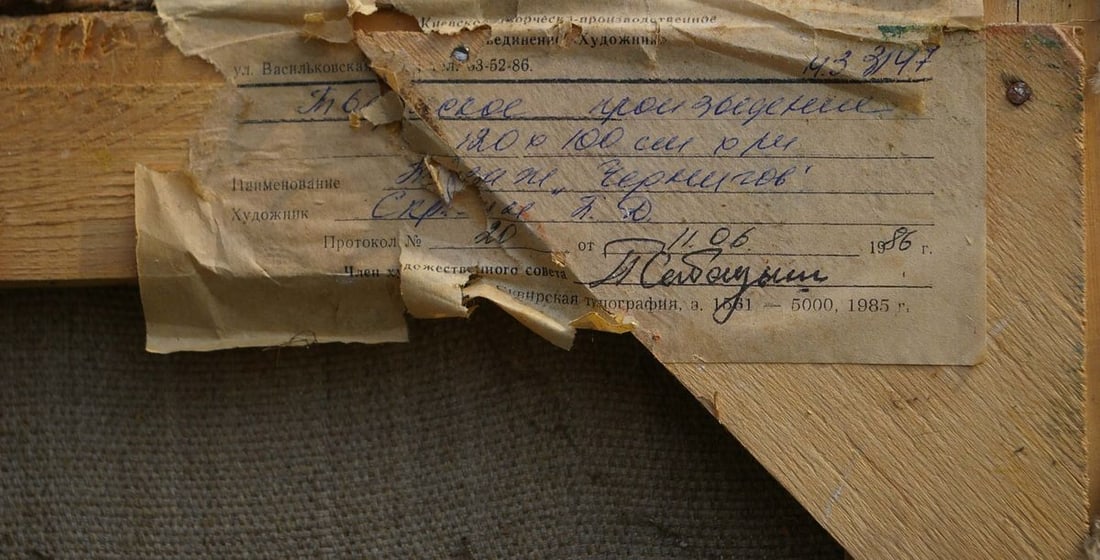 Киевско творческо-производственное
ъединение „Художник"
ул. Васильковская тел. 63-52-86.
ческое произведение
120 х 100 см х/м
Наименование „Чернигов"
Художник
Протокол № 20 от 11.06 1986 г.
Член художественного совета
типография, з. 1561 — 5000, 1985 г.